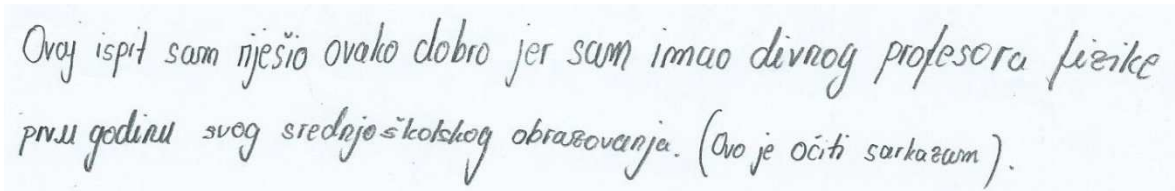 Ovaj ispit sam riješio ovako dobro jer sam imao divnog profesora fizike
prvu godinu svog srednjoškolskog obrazovanja. (Ovo je očiti sarkazam).